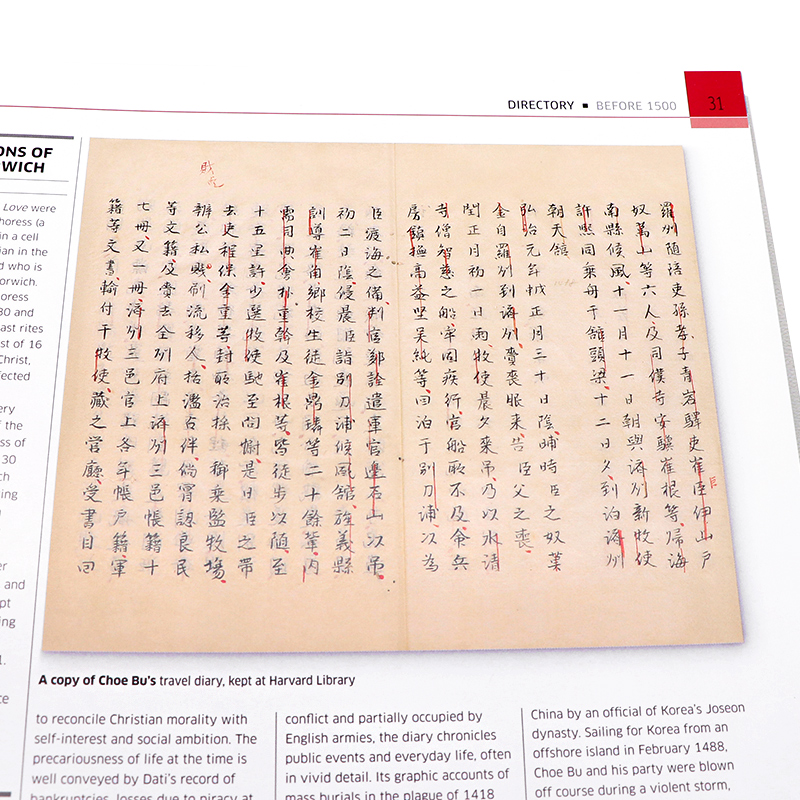 DIRECTORY ■ BEFORE 1500
31
ONS OF
WICH
Love were
horess (a
in a cell
ian in the
d who is
orwich.
oress
30 and
ast rites
st of 16
Christ,
fected
ery
f the
ss of
30
ch
ing
er
and
pt
ing
1.
ce
羅州隨陪吏孫孝子青岩驛吏崔巨伊山戶
臣
奴萬山等六人及司僕寺安驥崔根等歸海
南縣候風十一月十一日朝與濟州新牧使
許熙同乘舟于館頭梁十二日夕到泊濟州
朝天館
弘治元年戊申正月三十日陰晡時臣之奴莫
金自羅州到濟州賫喪服來告臣父之喪
閏正月初一日雨牧使晨夕來弔乃以水清
寺僧智慈之船牢固疾行官船所不及命兵
房鎮撫高益堅吳純等回泊于別刀浦以為
臣渡海之備判官鄭詮遣軍官邊石山以弔
初二日陰侵晨臣詣別刀浦候風館旌義縣
訓導崔南鄉校生徒金鼎璘等二十餘輩內
需司典會朴重幹及崔根等皆徒步以隨至
十五里許少選牧使馳至問慰是日臣之帶
去吏程保金重等封所治推御乘監牧場
辨公私賤刷流移人括濫占伴倘冒認良民
等文籍及賫去全州府上濟州三邑帳籍十
七冊又一冊濟州三邑官上各年帳戶籍軍
籍等文書輸付于牧使藏之營廳受書目回
A copy of Choe Bu's travel diary, kept at Harvard Library
to reconcile Christian morality with
self-interest and social ambition. The
precariousness of life at the time is
well conveyed by Dati's record of
bankruptcies, losses due to piracy at
conflict and partially occupied by
English armies, the diary chronicles
public events and everyday life, often
in vivid detail. Its graphic accounts of
mass burials in the plague of 1418
China by an official of Korea's Joseon
dynasty. Sailing for Korea from an
offshore island in February 1488,
Choe Bu and his party were blown
off course during a violent storm,